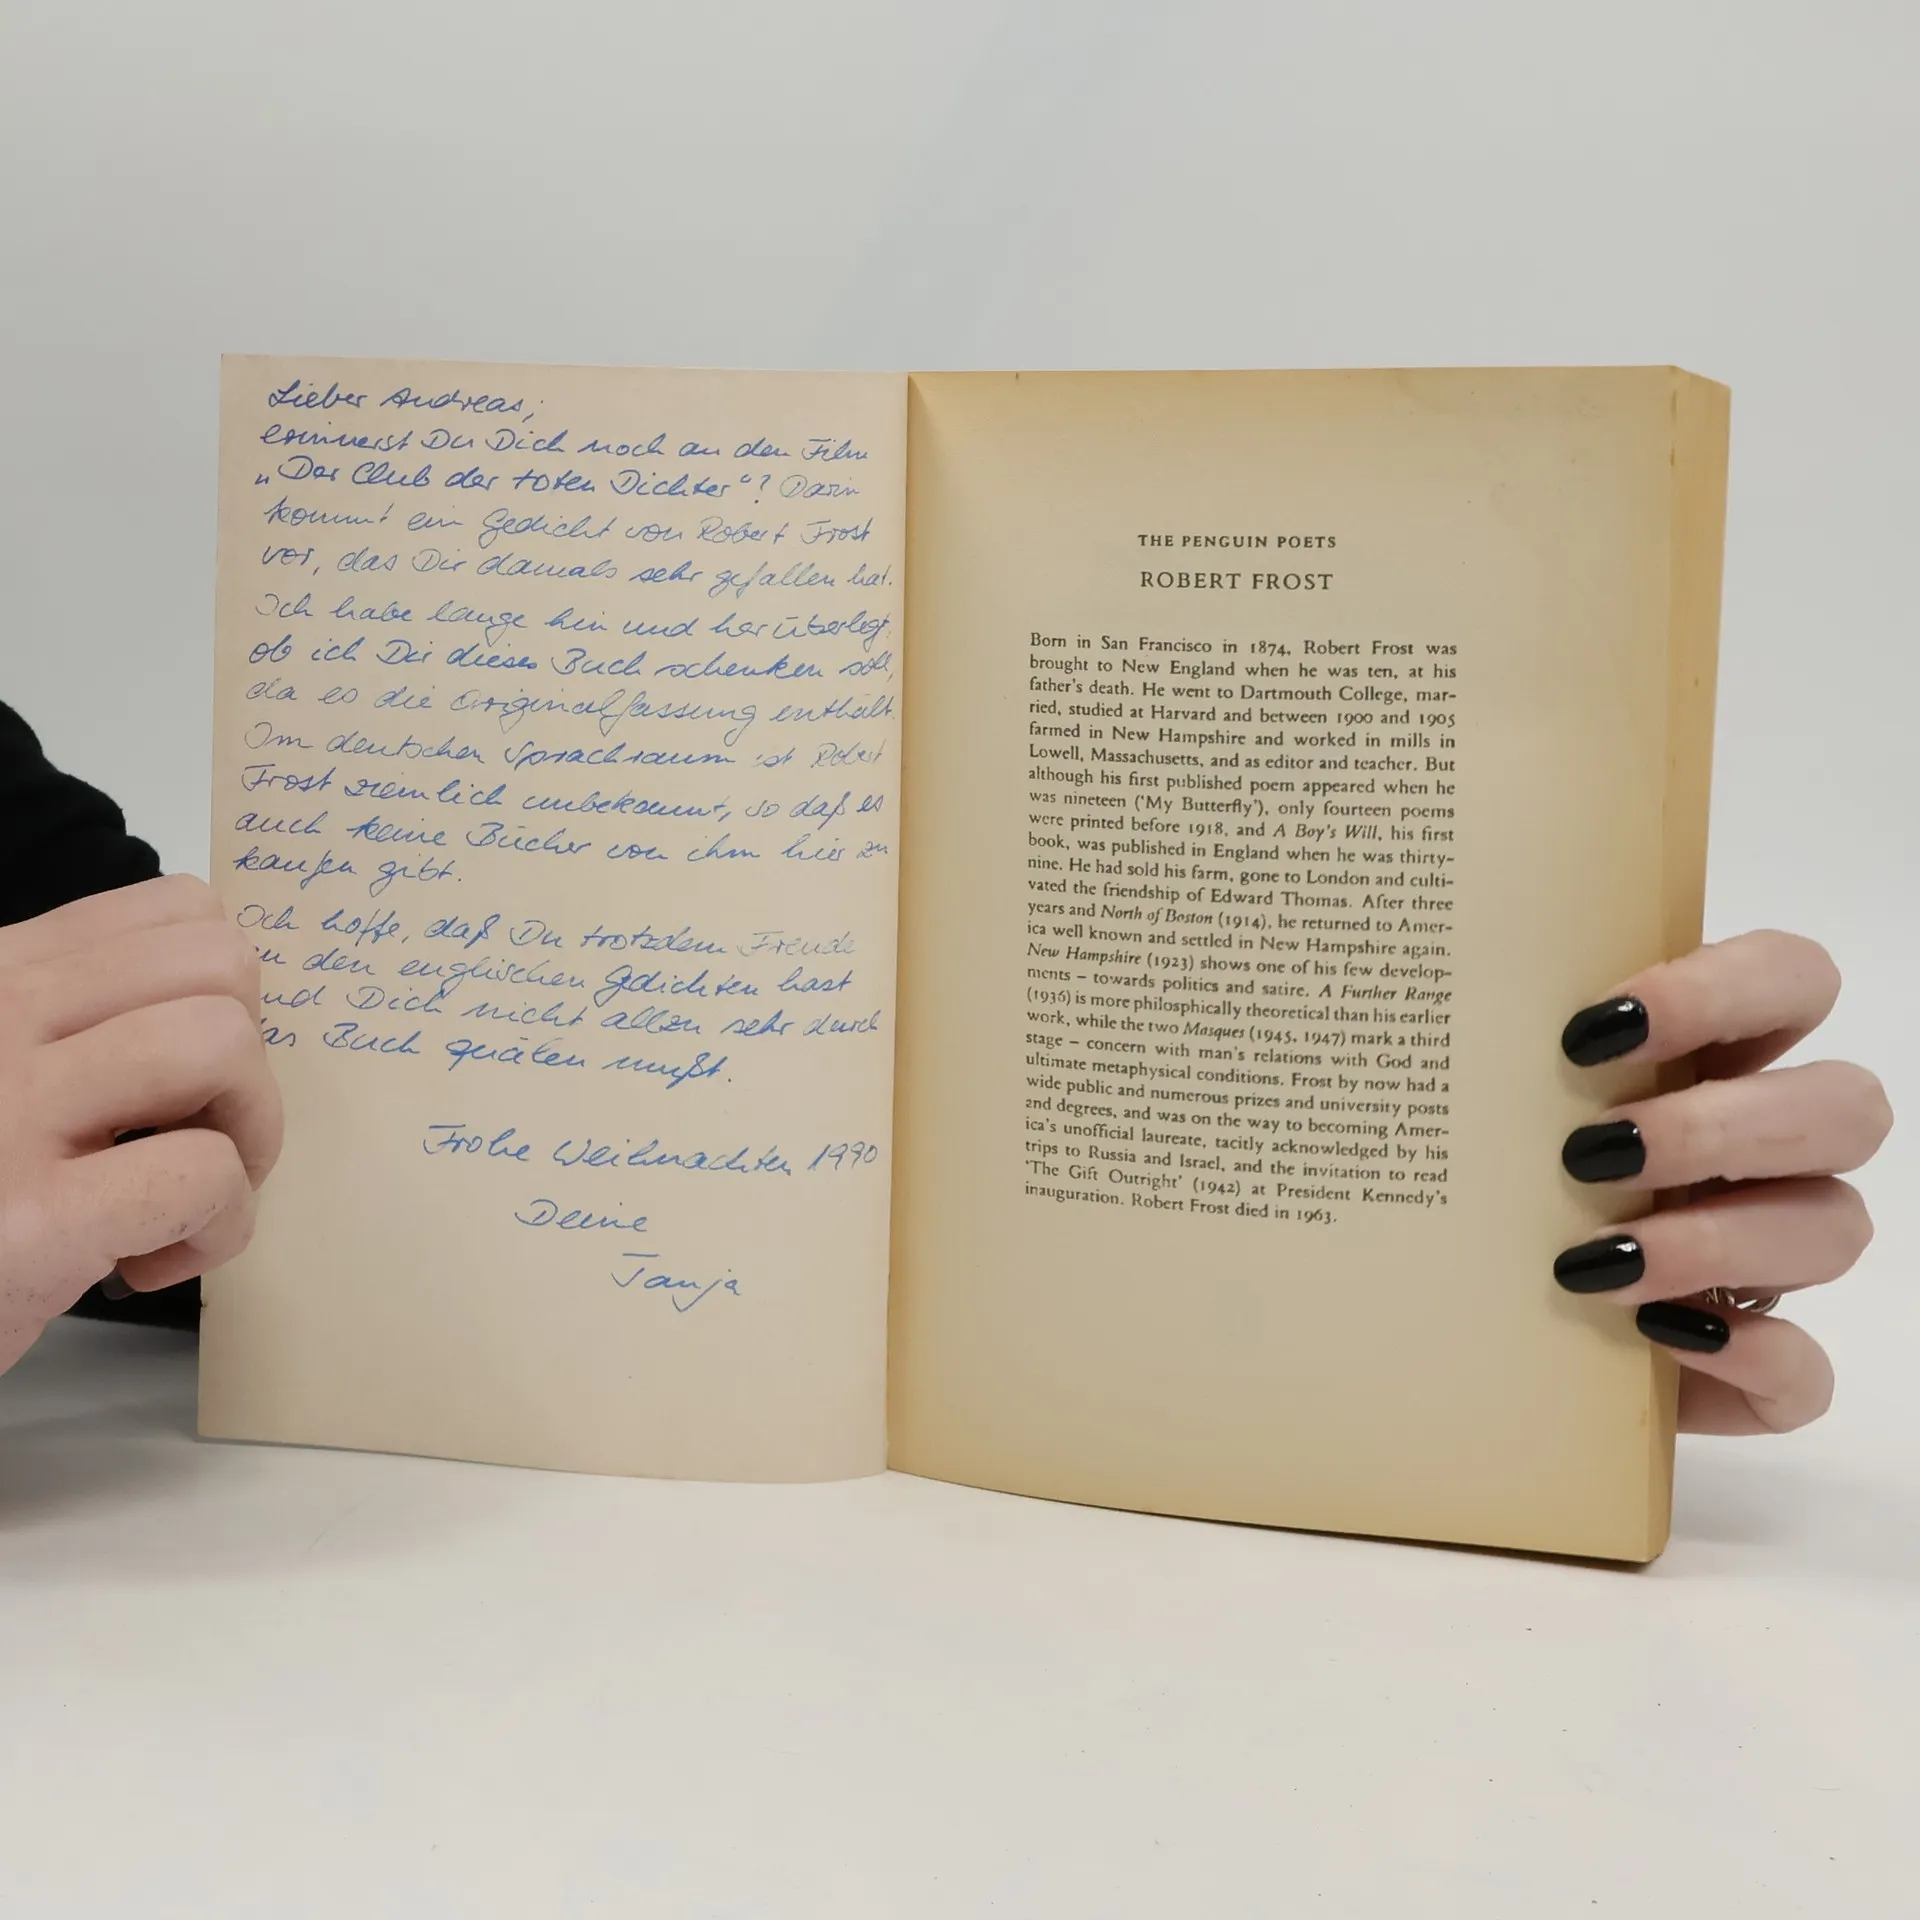 Lieber Andreas,
erinnerst Du Dich noch an den Film
„Der Club der toten Dichter“? Darin
kommt ein Gedicht von Robert Frost
vor, das Dir damals sehr gefallen hat.
Ich habe lange hin und her überlegt,
ob ich Dir dieses Buch schenken soll,
da es die Originalfassung enthält.
Im deutschen Sprachraum ist Robert
Frost ziemlich unbekannt, so daß es
auch keine Bücher von ihm hier zu
kaufen gibt.
Ich hoffe, daß Du trotzdem Freude
an den englischen Gedichten hast
und Dich nicht allzu sehr durch
das Buch quälen mußt.
Frohe Weihnachten 1990
Deine
Tanja
THE PENGUIN POETS
ROBERT FROST
Born in San Francisco in 1874, Robert Frost was
brought to New England when he was ten, at his
father's death. He went to Dartmouth College, mar-
ried, studied at Harvard and between 1900 and 1905
farmed in New Hampshire and worked in mills in
Lowell, Massachusetts, and as editor and teacher. But
although his first published poem appeared when he
was nineteen ('My Butterfly'), only fourteen poems
were printed before 1918, and A Boy's Will, his first
book, was published in England when he was thirty-
nine. He had sold his farm, gone to London and culti-
vated the friendship of Edward Thomas. After three
years and North of Boston (1914), he returned to Amer-
ica well known and settled in New Hampshire again.
New Hampshire (1923) shows one of his few develop-
ments – towards politics and satire. A Further Range
(1936) is more philosphically theoretical than his earlier
work, while the two Masques (1945, 1947) mark a third
stage – concern with man's relations with God and
ultimate metaphysical conditions. Frost by now had a
wide public and numerous prizes and university posts
and degrees, and was on the way to becoming Amer-
ica's unofficial laureate, tacitly acknowledged by his
trips to Russia and Israel, and the invitation to read
'The Gift Outright' (1942) at President Kennedy's
inauguration. Robert Frost died in 1963.